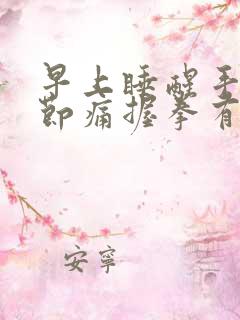 早上睡醒手
节痛握拳有
安寧